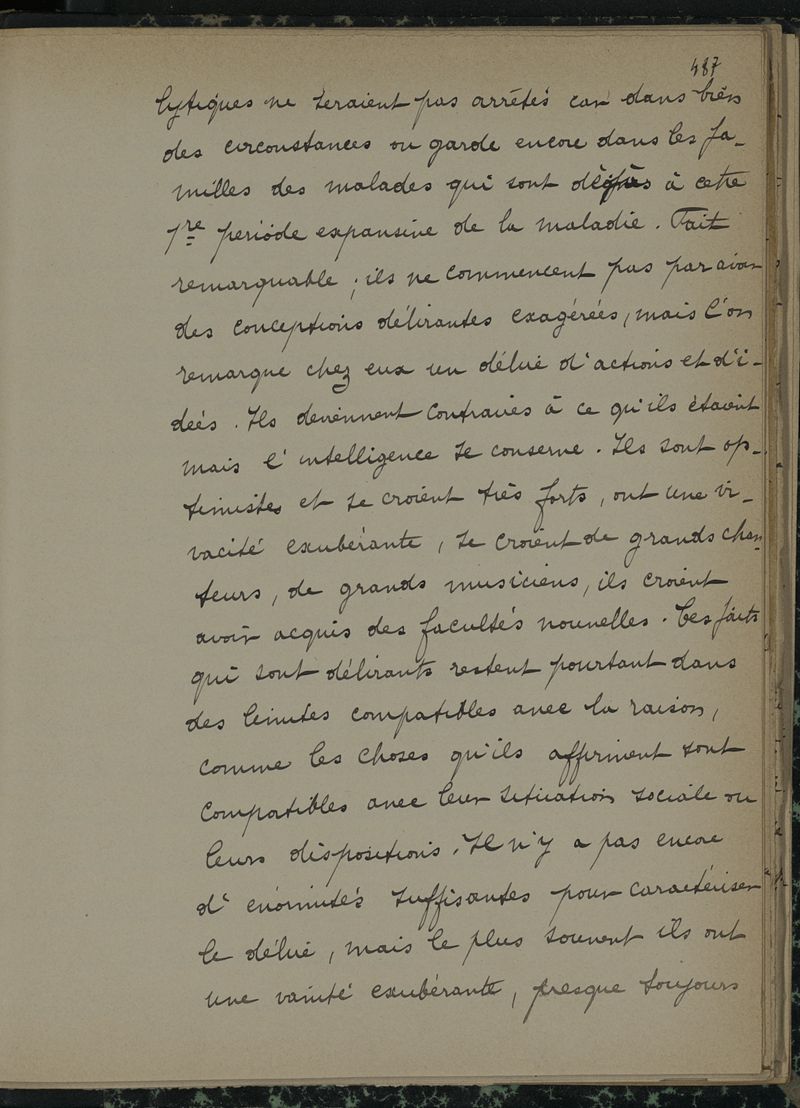 487
lytiques ne seraient pas arrêtés car dans bien
des circonstances on garde encore dans les fa-
milles des malades qui sont déjà à cette
1re période expansive de la maladie. Fait
remarquable ; ils ne commencent pas par avoir
des conceptions délirantes exagérées, mais l'on
remarque chez eux un délire d'actions et d'i-
deés. Ils deviennent contraires à ce qu'ils étaient
mais l'intelligence se conserve. Ils sont op-
timistes et se croient très forts, ont une vi-
vacité exubérante, se croient de grands chan-
teurs, de grands musiciens, ils croient
avoir acquis des facultés nouvelles. Ces faits
qui sont délirants restent pourtant dans
des limites compatibles avec la raison,
comme les choses qu'ils affirment sont
compatibles avec leur situation sociale ou
leurs dispositions. Il n'y a pas encore
d'énormités suffisantes pour caractériser
le délire, mais le plus souvent ils ont
une vanité exubérante, presque toujours